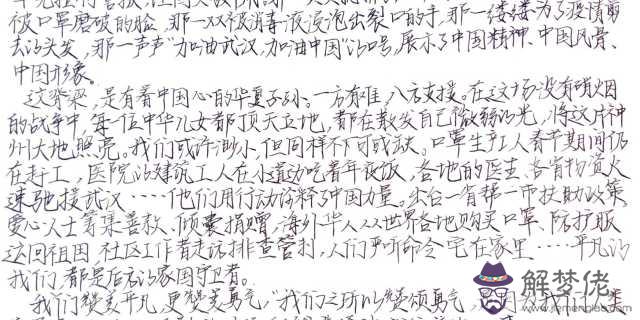 被口罩磨破的脸,那一双被消毒液浸泡出裂口的手,那一缕缕为了疫情剪
去的头发,那一声声“加油武汉,加油中国”的口号,展示了中国精神、中国风骨、
中国形象。
这脊梁,是有着中国心的华夏子孙。一方有难,八方支援。在这场没有硝烟
的战争中,每一位中华儿女都顶天立地,都在散发自己微弱的光,将这片神
州大地照亮。我们或许渺小,但同样不可或缺。口罩生产工人春节期间仍
在开工,医院的建筑工人在小道边吃着年夜饭,各地的医生、各省物资火
速驰援武汉……他们用行动诠释了中国力量。出台一省帮一市扶助政策,
爱心人士筹集善款、倾囊捐赠,海外华人从世界各地购买口罩、防护服
送回祖国,社区工作者走访排查管控,人们严听命令宅在家里……平凡的
我们,都是后方的家国守卫者。
我们赞美平凡,更赞美勇气,“我们之所以赞颂勇气,
解梦佬
www.jiemenglao.com